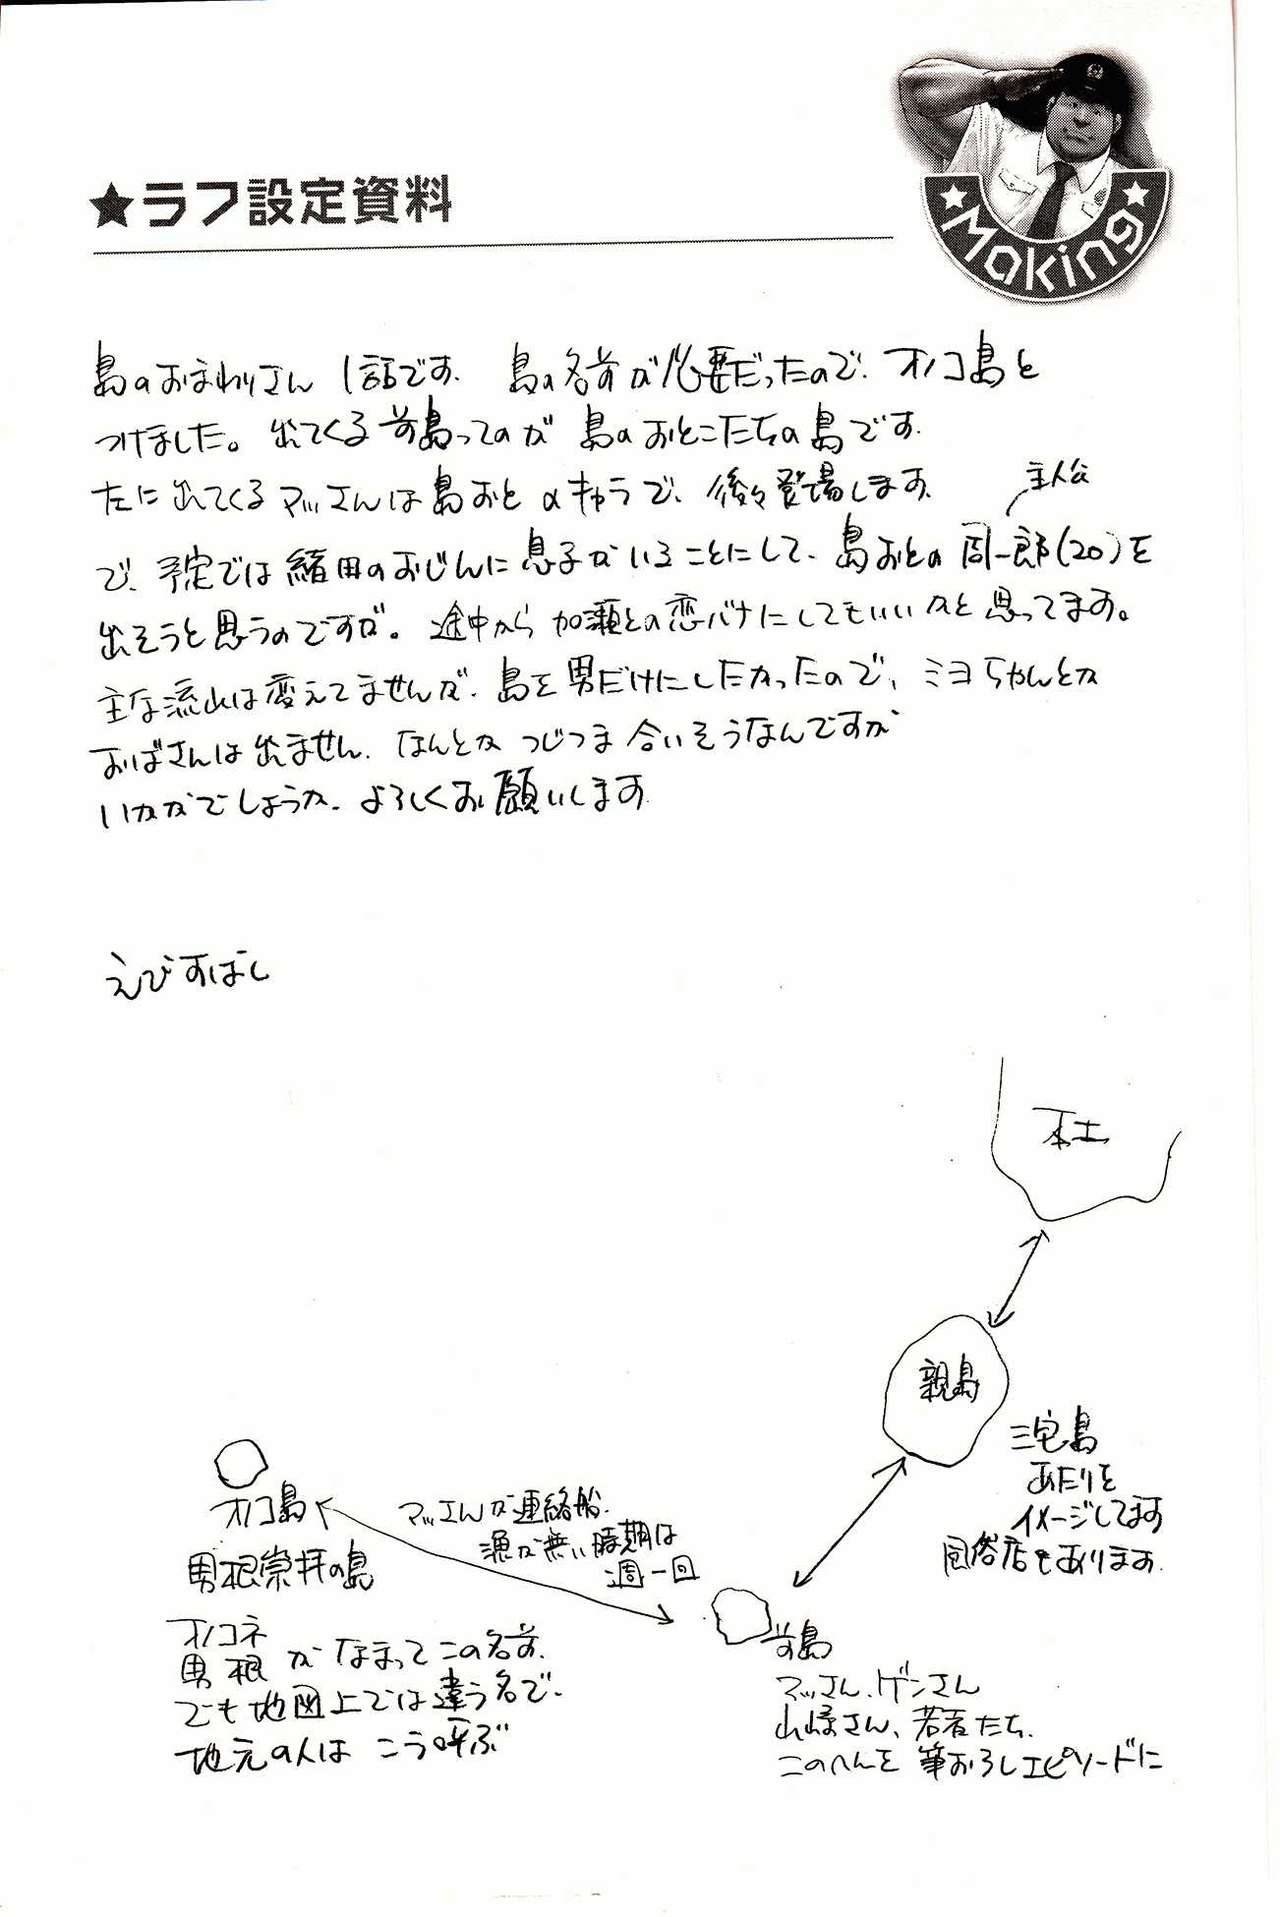 ★ラフ設定資料
★Making★
島のおまわりさん 1話です. 島の名前が必要だったので、オノコ島と
つけました。出てくる前島ってのが 島のおとこたちの島です.
たに出てくるマッさんは島おと αキャラで、後々登場します.
主人公
で、予定では緒田のおじんに息子がいることにして、島おとの周一郎(20)を
出そうと思うのですが。途中から加瀬との恋バナにしてもいいかと思ってます。
主な流れは変えてませんが、島を男だけにしたかったので、ミヨちゃんとか
おばさんは出ません. なんとか つじつま合いそうなんですが
いかがでしょうか. よろしくお願いします
えびすばし
本土
親島
三宅島
あたりを
イメージしてます
風俗店もあります.
オノコ島
男根崇拝の島
オノコネ
男根がなまってこの名前.
でも地図上では違う名で.
地元の人は こう呼ぶ
マッさんが連絡船.
漁が無い時期は
週一回
前島
マッさん、ゲンさん
山崎さん、若者たち.
このへんを筆おろしエピソードに